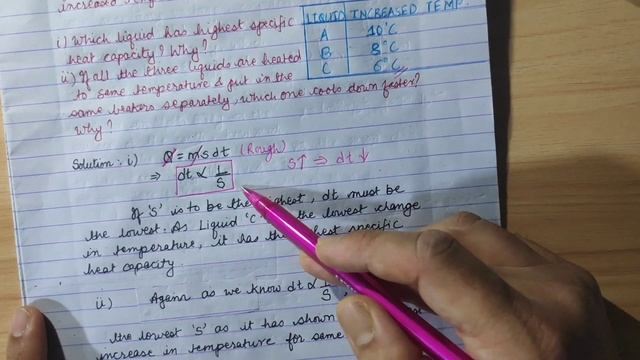 increased
i) Which liquid has highest specific
heat capacity? Why?
ii) If all the three liquids are heated
to same temperature & put in the
same beakers separately, which one cools down faster?
Why?
LIQUID INCREASED TEMP.
A 10°C
B 8°C
C 6°C
Solution: i) Q = msdt (Rough) s↑ ⇒ dt↓
⇒ dt ∝ 1/S
If 'S' is to be the highest, dt must be
the lowest. As Liquid 'C' the lowest change
in temperature, it has the highest specific
heat capacity.
ii) Again as we know dt ∝ 1/S,
the lowest 's' as it has shown
increase in temperature for same